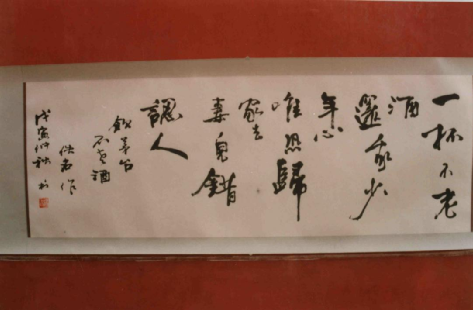 一杯不老
酒
還我少
年心
唯恐歸
家去
妻兒錯
認人
不老酒
作
戊寅仲秋